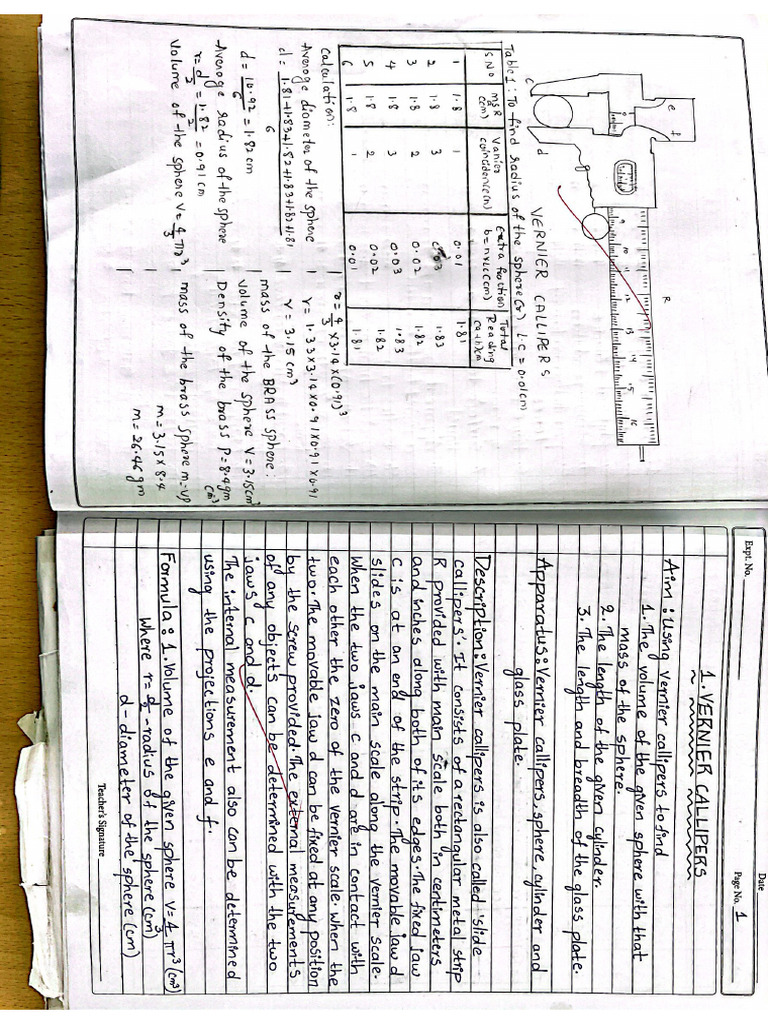 c
d
e
f
R
9
10
11
12
13
14
15
16
VERNIER CALLIPERS
Table 1: To find radius of the sphere (r) L.C = 0.01 (cm)
S.No | MSR a (cm) | Vernier coincidence (n) | extra fraction b = n x L.C (cm) | Total Reading (a+b) cm
1 | 1.8 | 1 | 0.01 | 1.81
2 | 1.8 | 3 | 0.03 | 1.83
3 | 1.8 | 2 | 0.02 | 1.82
4 | 1.8 | 3 | 0.03 | 1.83
5 | 1.8 | 2 | 0.02 | 1.82
6 | 1.8 | 1 | 0.01 | 1.81
calculation:
Average diameter of the sphere
d = 1.81+1.83+1.82+1.83+1.82+1.81
6
d = 10.92 / 6 = 1.82 cm
Average radius of the sphere
r = d/2 = 1.82/2 = 0.91 cm
Volume of the sphere V = 4/3 πr³
v = 4/3 x 3.14 x (0.91)³
v = 1.33 x 3.14 x 0.91 x 0.91 x 0.91
v = 3.15 cm³
mass of the BRASS sphere:
volume of the sphere V = 3.15 cm³
Density of the brass P = 8.4 gm/cm³
mass of the brass sphere m = vp
m = 3.15 x 8.4
m = 26.46 gm
Date
Expt. No.
Page No. 1
1. VERNIER CALLIPERS
Aim: Using Vernier callipers to find
1. The volume of the given sphere with that
mass of the sphere.
2. The length of the given cylinder.
3. The length and breadth of the glass plate.
Apparatus: Vernier callipers, sphere, cylinder and
glass plate.
Description: Vernier callipers is also called 'slide
callipers'. It consists of a rectangular metal strip
R provided with main scale both in centimeters
and inches along both of its edges. The fixed jaw
c is at an end of the strip. The movable jaw d
slides on the main scale along the vernier scale.
When the two jaws c and d are in contact with
each other the zero of the vernier scale. when the
two. The movable jaw d can be fixed at any position
by the screw provided. The external measurements
of any objects can be determined with the two
jaws c and d.
The internal measurement also can be determined
using the projections e and f.
Formula: 1. Volume of the given sphere V = 4/3 πr³ (cm³)
Where r = d/2 - radius of the sphere (cm)
d - diameter of the sphere (cm)
Teacher's Signature